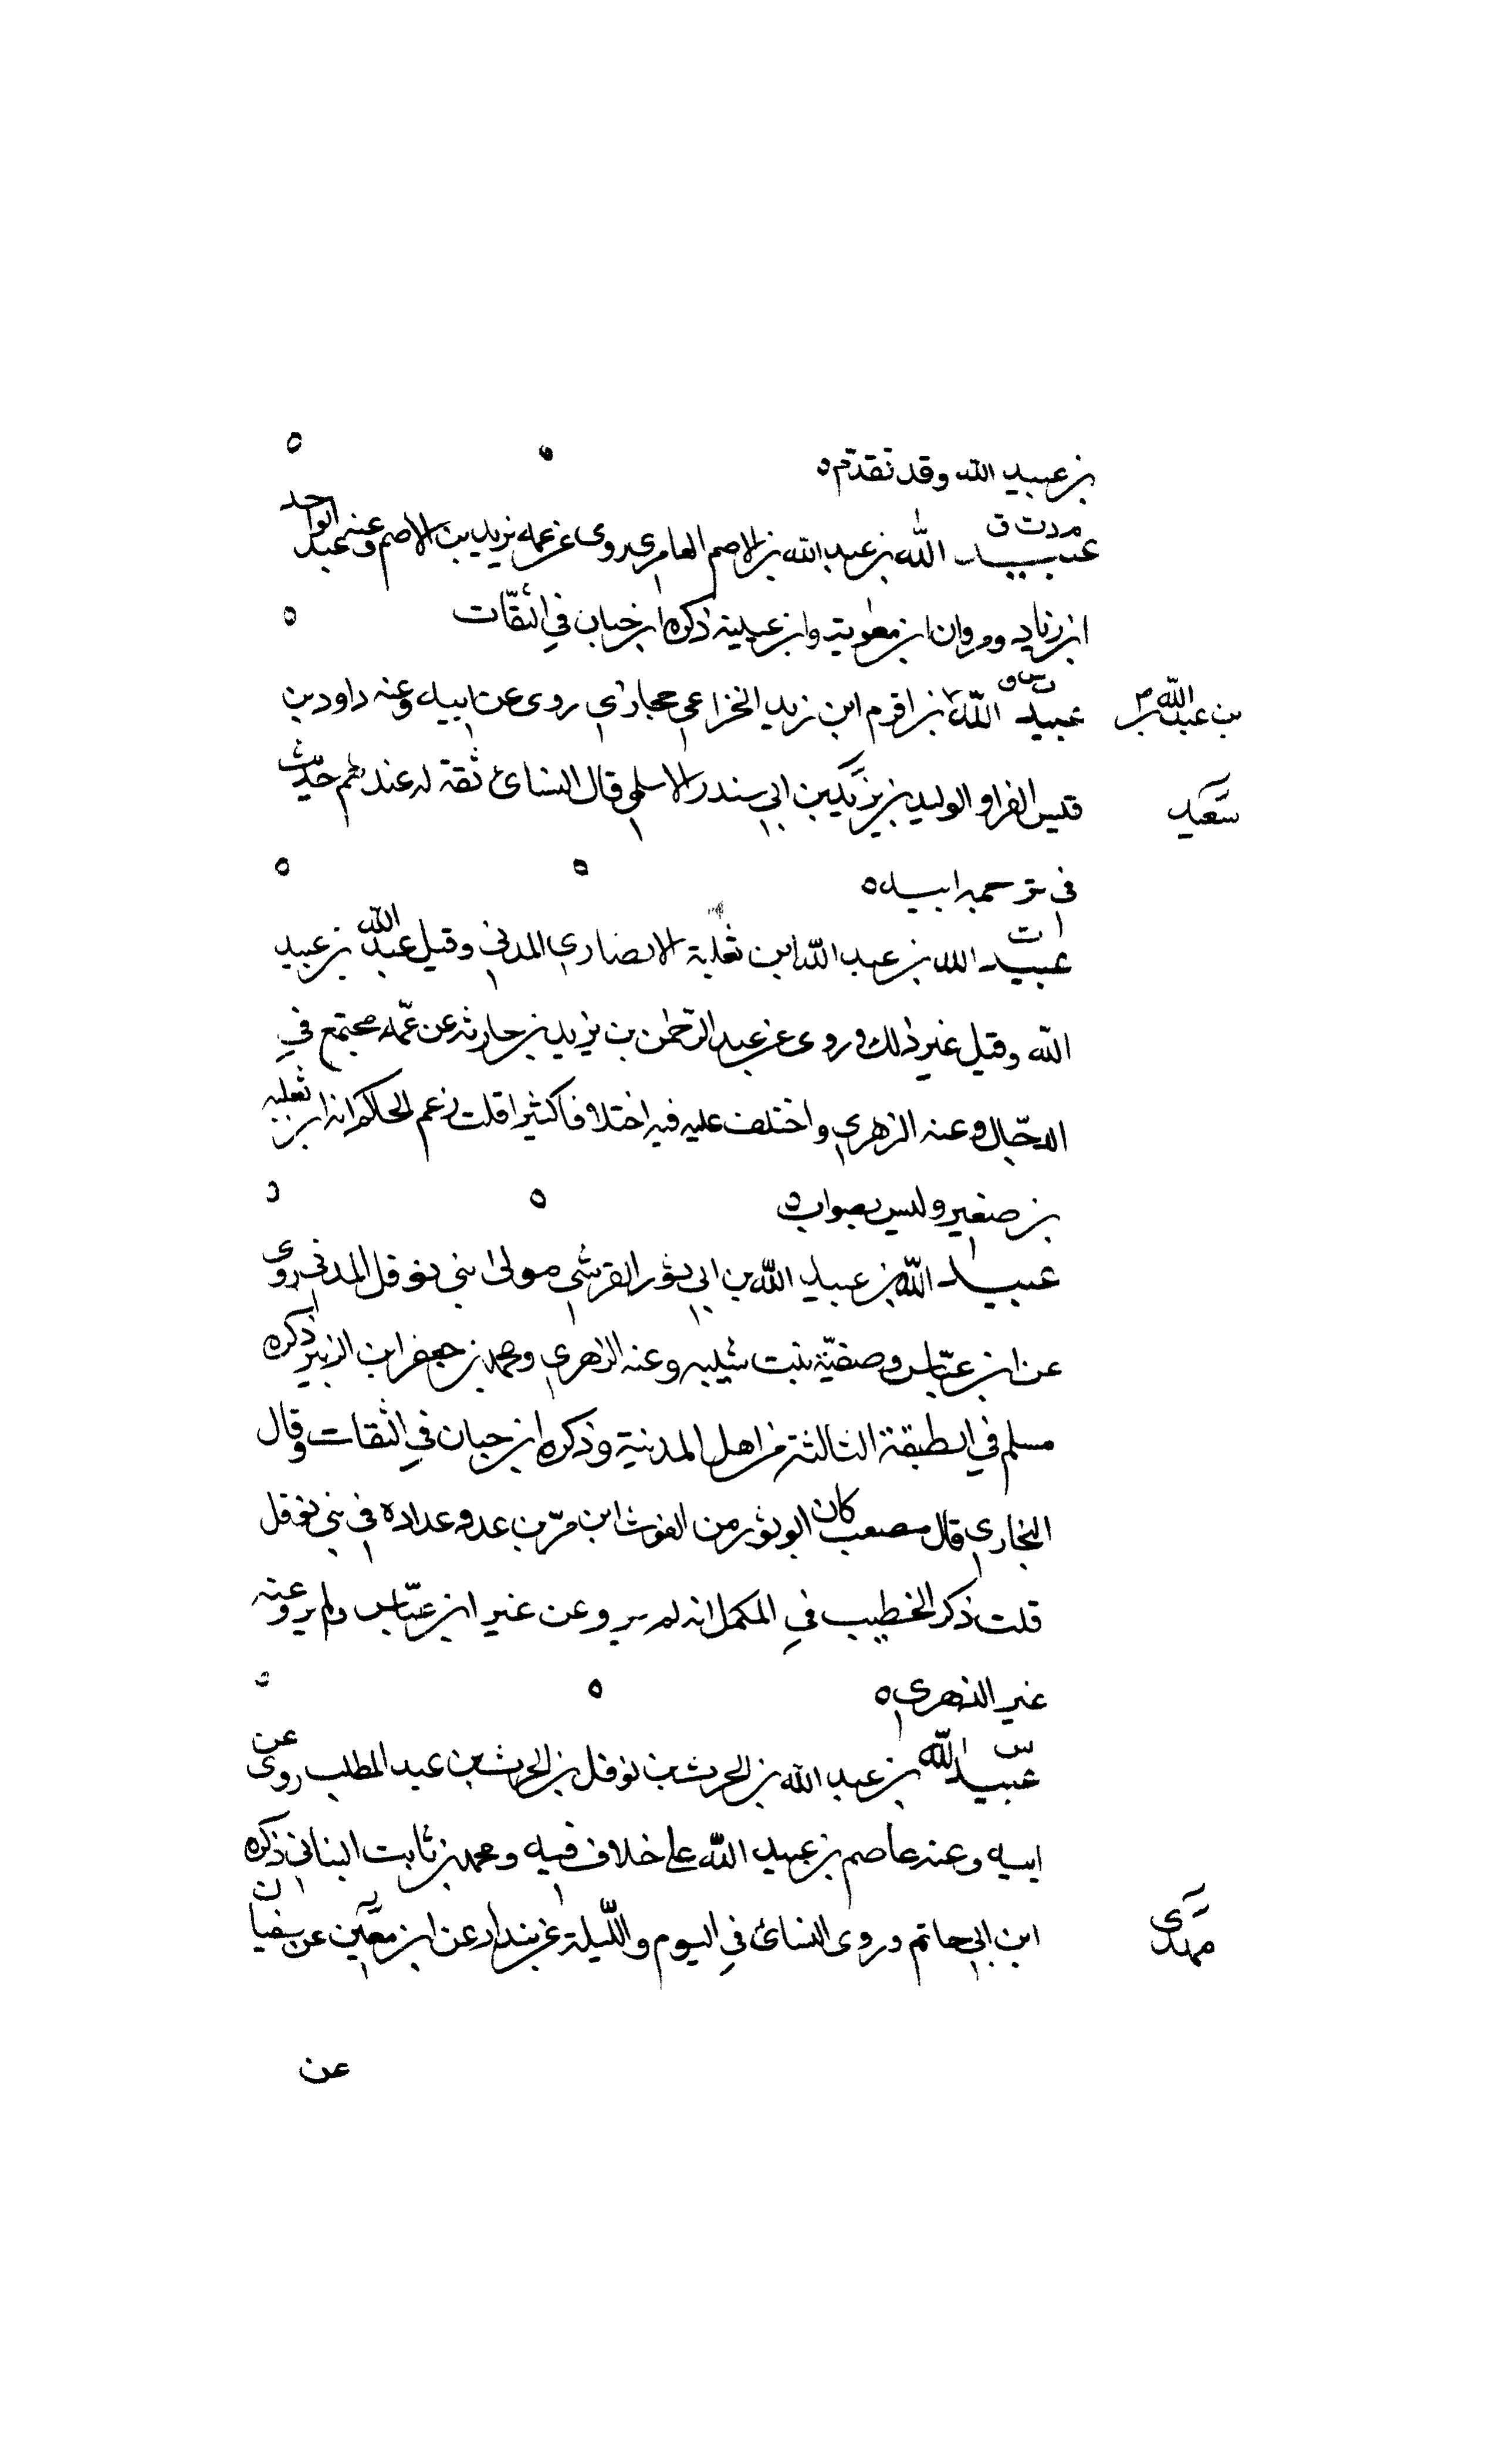 بن عبيد الله وقد تقدم ه
م د ت ق
عبيد الله بن عبد الله بن الاصم العامري روى عن عمه يزيد بن الاصم وعنه عبد الواحد
ابن زياد ومروان ابن معوية وابن عيينة ذكره ابن حبان في الثقات
ت س ق
عبيد الله بن اقرم ابن زيد الخزاعي حجازي روى عن ابيه وعنه داود بن
بن عبد الله بن
قيس الفرا والوليد بن يزيد بن ابي سندر الاسلمي قال النسائ ثقة له عندهم حديث
سعيد
في ترجمه ابيه ه
ت
عبيد الله بن عبد الله ابن ثعلبة الانصاري المدني وقيل عبد الله بن عبيد
الله وقيل غير ذلك روى عن عبد الرحمن بن يزيد بن حارثه عن عمه مجمع في
الدجال وعنه الزهري واختلف عليه فيه اختلافا كثيرا قلت زعم الحاكم انه ابن ثعلبه
بن صغير وليس بصواب ه
عبيد الله بن عبد الله بن ابي ثور القرشي مولى بني نوفل المدني روى
عن ابن عباس وصفية بنت شيبه وعنه الزهري ومحمد بن جعفر ابن الزبير ذكره
مسلم في الطبقة الثالثة من اهل المدينة وذكره ابن حبان في الثقات وقال
البخاري قال مصعب كان ابو ثور من الغوث ابن مر بن عد وعداده في بني نوفل
قلت ذكر الخطيب في المكمل انه لم يرو عن غير ابن عباس ولم يرو عنه
غير الزهري ه
س
عبيد الله بن عبد الله بن الحرث بن نوفل بن الحرث بن عبد المطلب روى عن
ابيه وعنه عاصم بن عبيد الله على خلاف فيه ومحمد بن ثابت البناني ذكره
ابن ابي حاتم وروى النسائ في اليوم والليلة عن بندار عن ابن عن سفيان
مهدي
عن